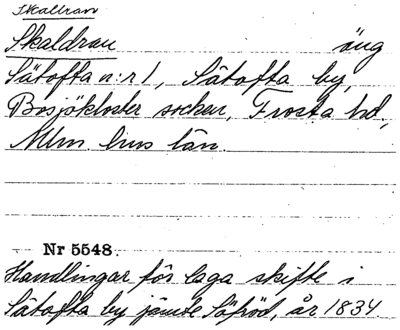 Skallran
Skaldran äng
Sätofta n:r 1, Sätofta by,
Bosjökloster socken, Frosta hd,
Mlm. hus län.
Nr 5548.
Handlingar för laga skifte i
Sätofta by jämte Säfröd, år 1834.